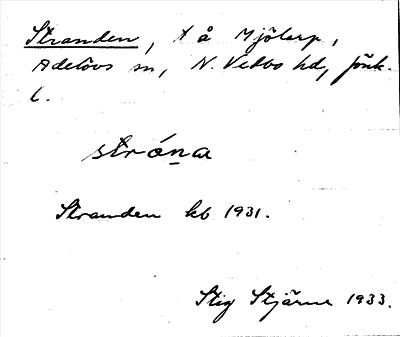 Stranden, t å Mjölarp,
Adelövs sn, N. Vedbo hd, Jönk.
l.
stróṇa
Stranden kb 1931.
Stig Stjärne 1933.